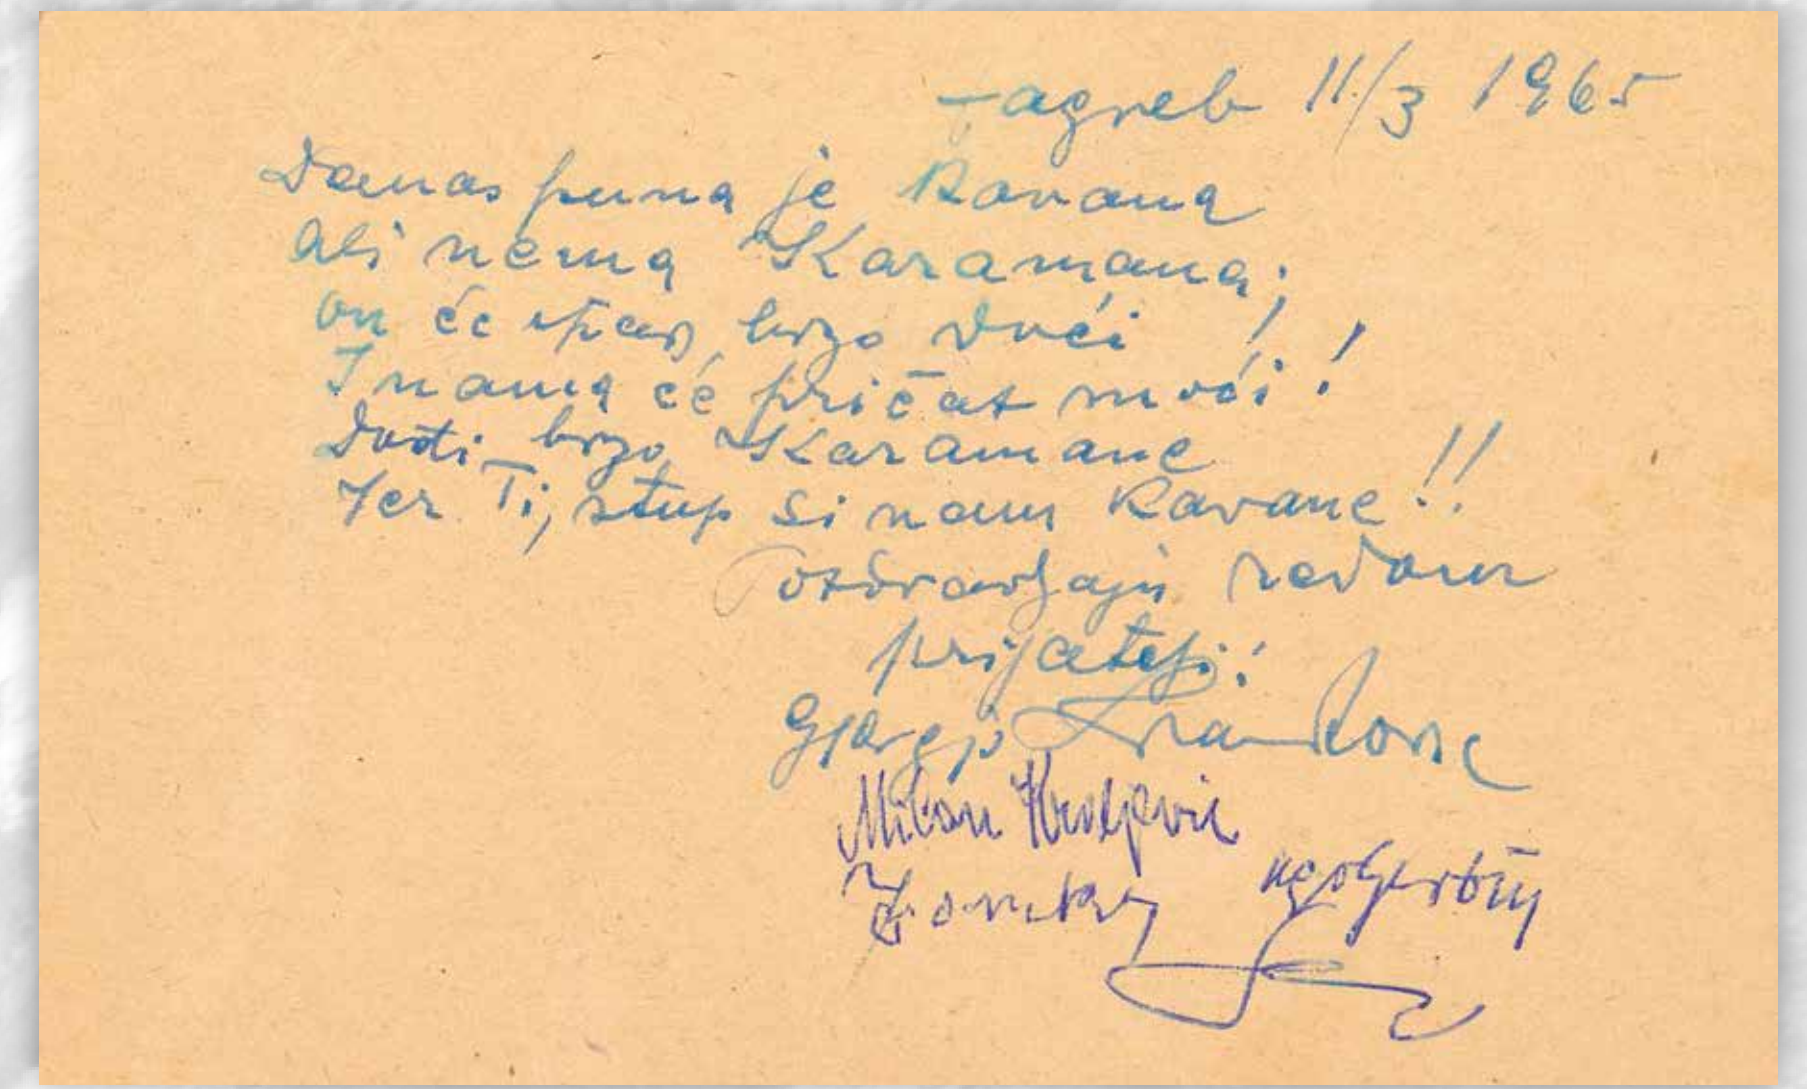 Zagreb 11/3 1965
Danas puna je kavana
ali nema Karamana;
on će opas brzo doći !!
I nama će pričat moći!
Dođi brzo Karamane
Jer Ti, stup si nam kavane!!
Pozdravljaju redom
prijatelji:
Gjorgjo
Milan